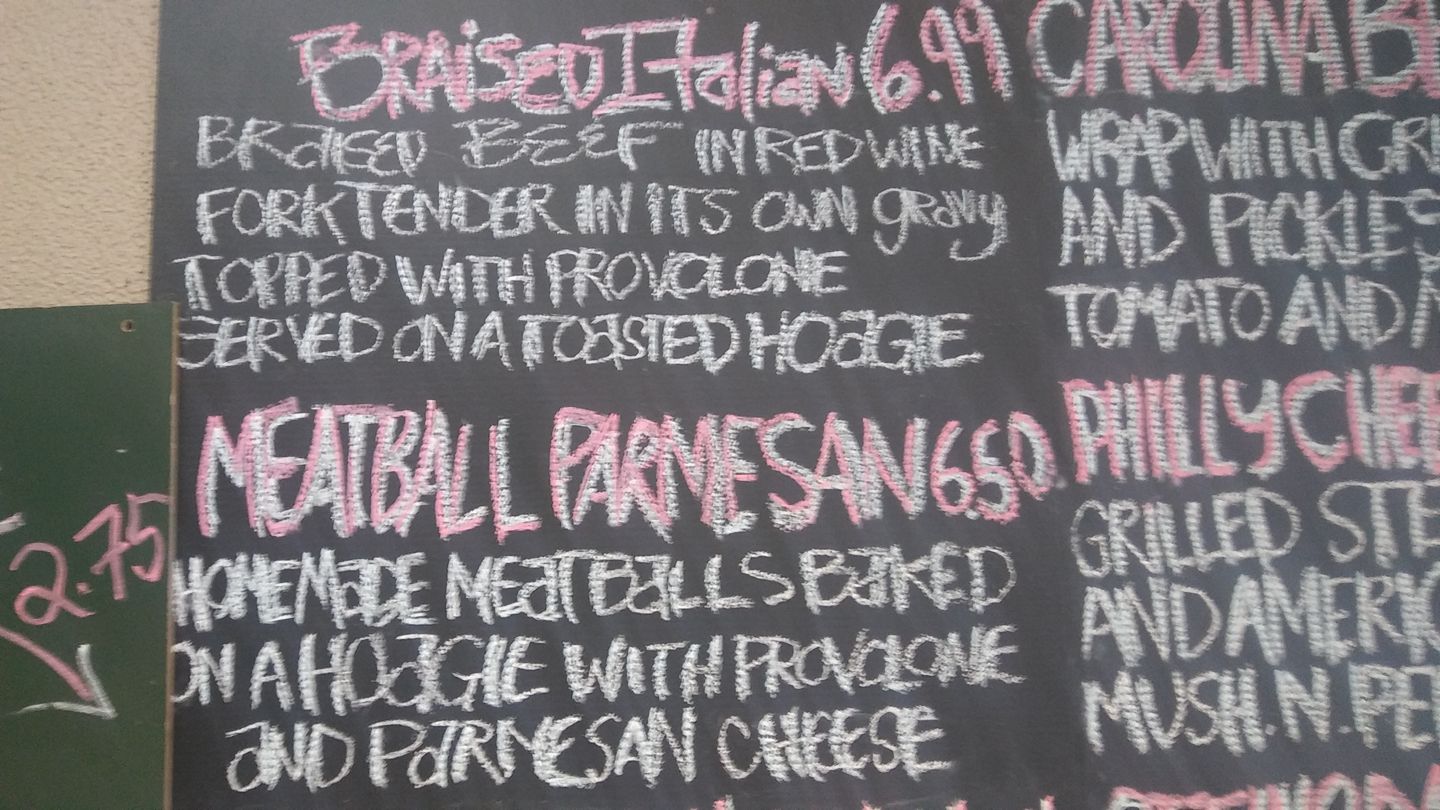 BRAISED ITalian 6.99
BRAISED BEEF IN RED WINE
FORK TENDER IN ITS OWN gravy
TOPPED WITH PROVOLONE
SERVED ON A TOaSTED HOaGIE
MEATBALL PARMESAN 6.50
HOMEMaDE MEaTBaLLS BaKED
ON A HOaGIE WITH PROVOLONE
aND PaRMESAN CHEESE
CAROLINA
WRAP WITH
AND PICKLES
TOMATO AND
PHILLY
GRILLED
AND
MUSH. N.
2.75